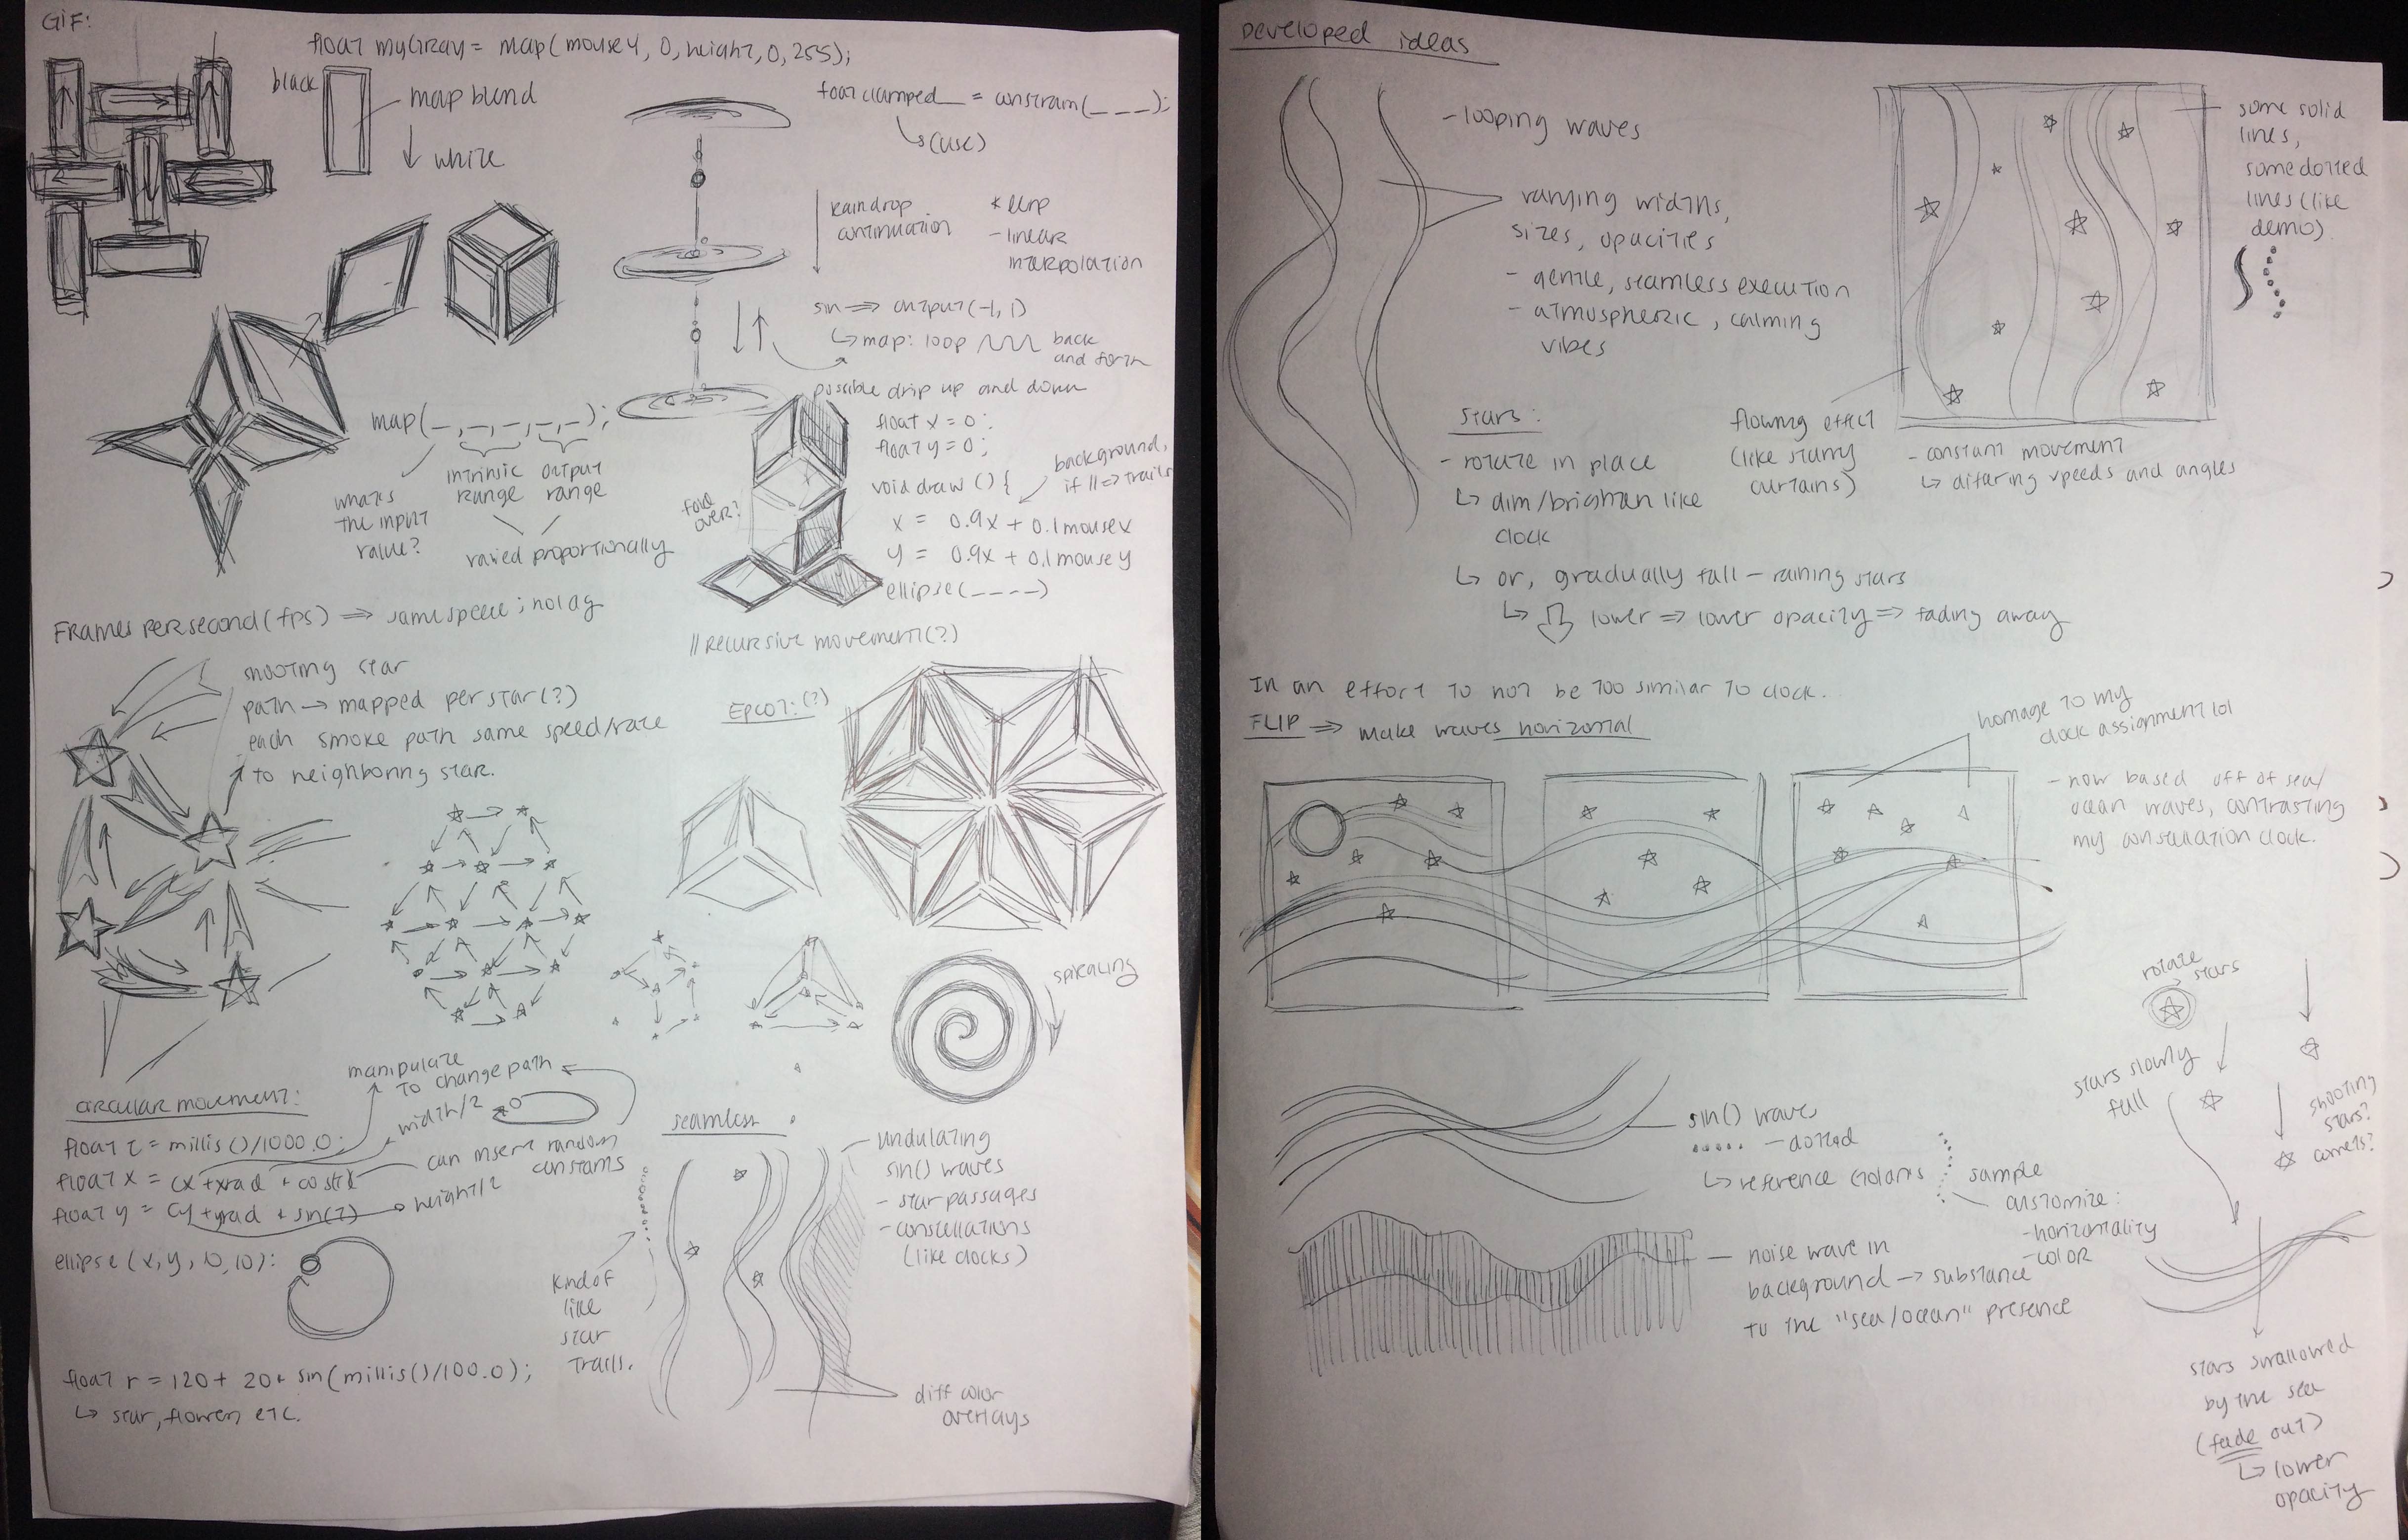 GIF:
float myGray = map(mouseY, 0, height, 0, 255);
black
map blend
white
float clamped__ = constrain(_ _ _);
(use)
raindrop
continuation
* lerp
- linear
interpolation
sin => output(-1, 1)
map: loop
back
and forth
possible drip up and down
map(_,_,_,_,_);
what's
the input
value?
intrinsic
range
output
range
varied proportionally
fold
over?
float x = 0;
float y = 0;
void draw () {
background,
if // => trails
x = 0.9x + 0.1mousex
y = 0.9x + 0.1mousey
ellipse(_ _ _ _)
Frames per second (fps) => same speed; no lag
// recursive movement(?)
shooting star
path → mapped per star(?)
each smoke path same speed/rate
to neighboring star.
Epcot: (?)
spiraling
manipulate
to change path
circular movement:
width/2
float t = millis()/1000.0;
float x = cx + xrad + cos(t)
float y = cy + yrad + sin(t)
height/2
can insert random
constants
ellipse (x, y, 10, 10):
float r = 120 + 20 + sin(millis()/100.0);
star, flower, etc.
seamless
undulating
sin() waves
- star passages
- constellations
(like clocks)
kind of
like
star
trails.
diff color
overlays
Developed ideas
- looping waves
varying widths,
sizes, opacities
- gentle, seamless execution
- atmospheric, calming
vibes
some solid
lines,
some dotted
lines (like
demo)
stars:
- rotate in place
dim/brighten like
clock
or, gradually fall - raining stars
lower => lower opacity => fading away
flowing effect
(like starry
curtains)
- constant movement
differing speeds and angles
In an effort to not be too similar to clock.
FLIP => make waves horizontal
homage to my
clock assignment lol
- now based off of sea/
ocean waves, contrasting
my constellation clock.
rotate
stars
stars slowly
fall
shooting
stars?
comets?
sin() waves
..... - dotted
reference Golan's
sample
customize:
- horizontality
- color
noise wave in
background → substance
to the "sea/ocean" presence
stars swallowed
by the sea
(fade out)
lower
opacity